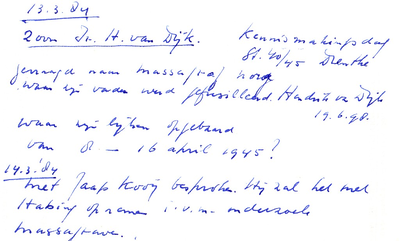 13.3.84
Zoon Dr. H. van Dijk. Kennismakingsdag
St. 40/45 Drenthe
gevraagd naar massagraf
waar zijn vader werd gefusilleerd. Hendrik v. Dijk
19.6.98.
waar zijn lijken opgebaard
van 8 – 16 april 1945?
14.3.84
met Jaap Kooij besproken. Hij zal het met
opnemen i.v.m. onderzoek
massagraven.